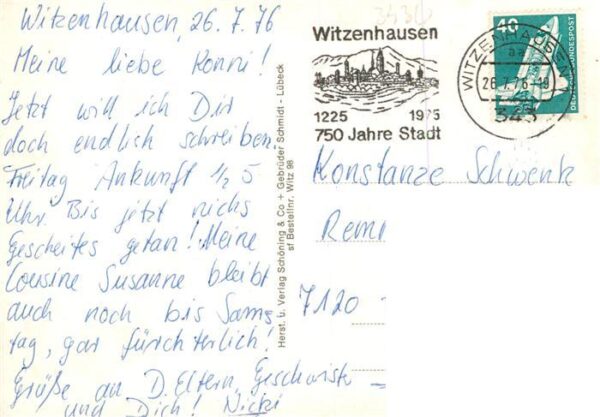 Witzenhausen, 26.7.76
Meine liebe Konni!
Jetzt will ich Dir
doch endlich schreiben.
Freitag Ankunft 1/2 5
Uhr. Bis jetzt nichs
Gescheites getan! Meine
Cousine Susanne bleibt
auch noch bis Sams-
tag, gar fürchterlich!
Grüße an D. Eltern, Geschwiste
und Dich! Nicki
Herst. u. Verlag Schöning & Co + Gebrüder Schmidt - Lübeck
sf Bestellnr. Witz 98
3430
Witzenhausen
1225 1975
750 Jahre Stadt
WITZENHAUSEN
aa
26.7.76-18
343
40
DEUTSCHE BUNDESPOST
Konstanze Schwenk
Rem
7120